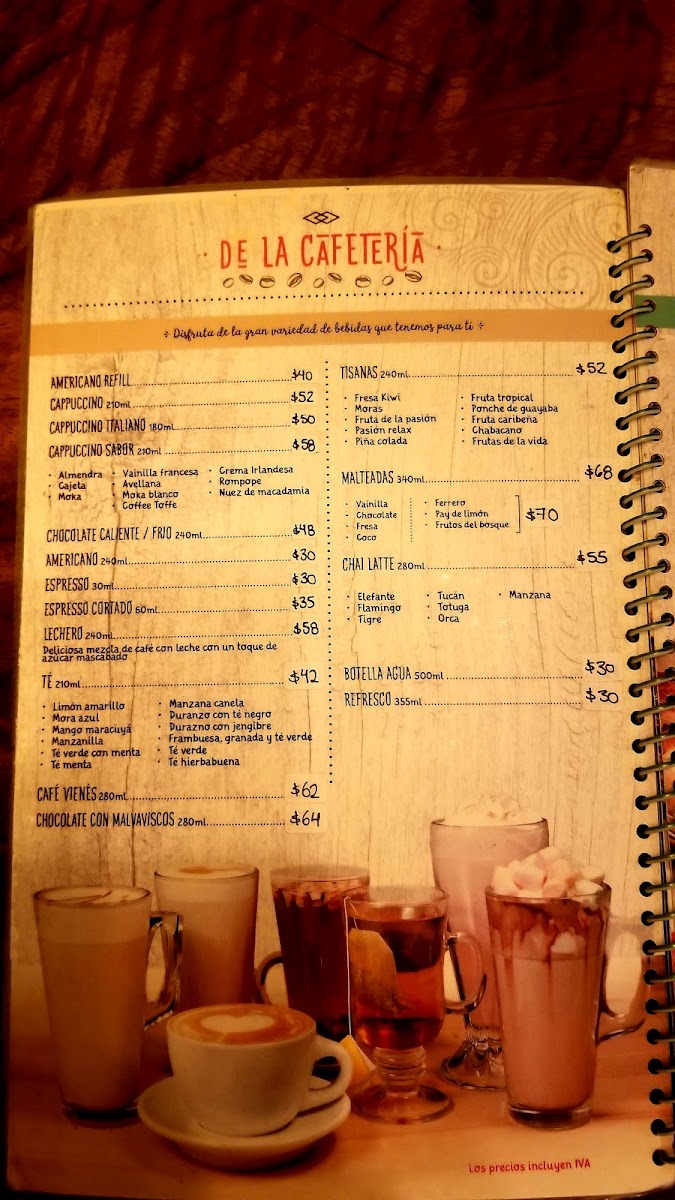 DE LA CAFETERÍA
Disfruta de la gran variedad de bebidas que tenemos para ti
AMERICANO REFILL $40
CAPPUCCINO 210ml. $52
CAPPUCCINO ITALIANO 180ml. $50
CAPPUCCINO SABOR 210ml. $58
• Almendra
• Cajeta
• Moka
• Vainilla francesa
• Avellana
• Moka blanco
• Coffee Toffe
• Crema Irlandesa
• Rompope
• Nuez de macadamia
CHOCOLATE CALIENTE / FRIO 240ml. $48
AMERICANO 240ml. $30
ESPRESSO 30ml. $30
ESPRESSO CORTADO 60ml. $35
LECHERO 240ml. $58
Deliciosa mezcla de café con leche con un toque de
azúcar mascabado
TÉ 210ml. $42
• Limón amarillo
• Mora azul
• Mango maracuyá
• Manzanilla
• Té verde con menta
• Té menta
• Manzana canela
• Duranzo con té negro
• Durazno con jengibre
• Frambuesa, granada y té verde
• Té verde
• Té hierbabuena
CAFÉ VIENÉS 280ml. $62
CHOCOLATE CON MALVAVISCOS 280ml. $64
TISANAS 240ml. $52
• Fresa Kiwi
• Moras
• Fruta de la pasión
• Pasión relax
• Piña colada
• Fruta tropical
• Ponche de guayaba
• Fruta caribeña
• Chabacano
• Frutas de la vida
MALTEADAS 340ml. $68
• Vainilla
• Chocolate
• Fresa
• Coco
• Ferrero
• Pay de limón
• Frutos del bosque
$70
CHAI LATTE 280ml. $55
• Elefante
• Flamingo
• Tigre
• Tucán
• Totuga
• Orca
• Manzana
BOTELLA AGUA 500ml. $30
REFRESCO 355ml. $30
Los precios incluyen IVA